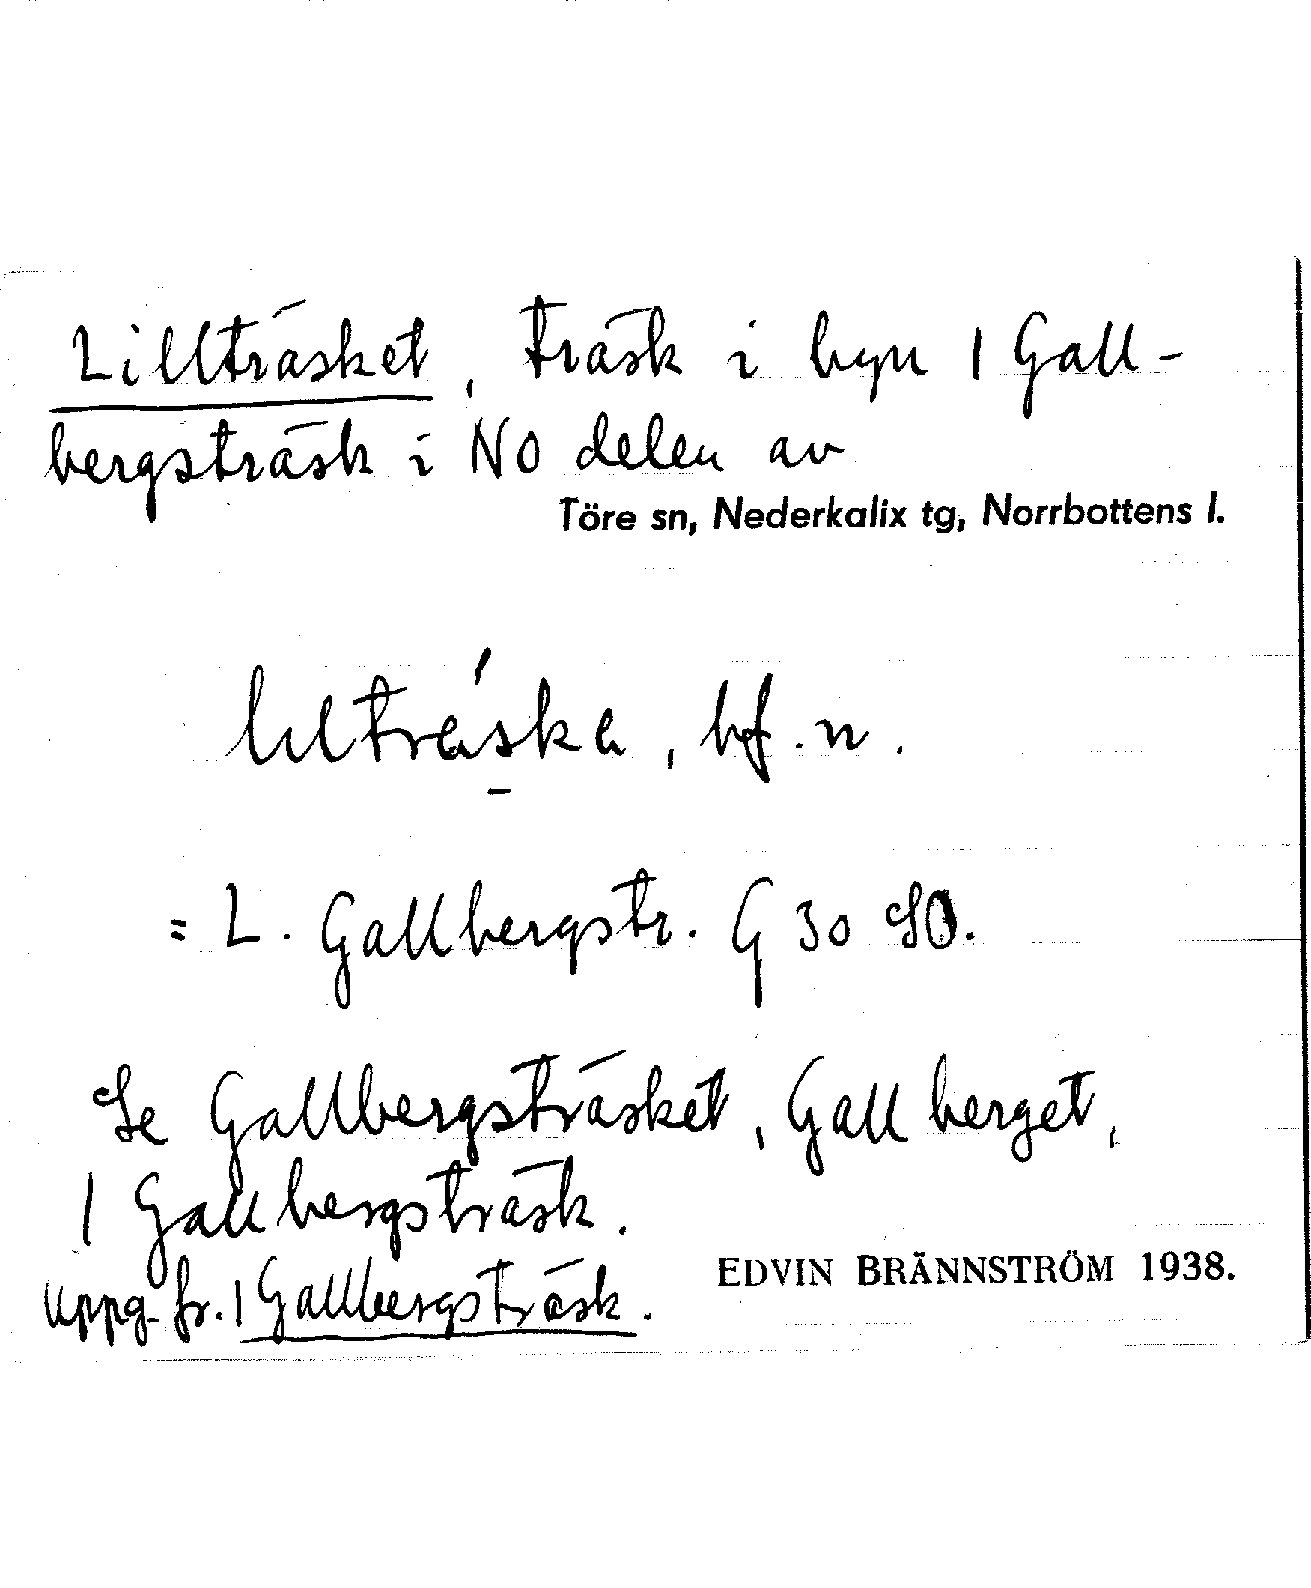 Lillträsket, träsk i byn 1 Gall-
bergsträsk i NO delen av
Töre sn, Nederkalix tg, Norrbottens l.
bf. n.
= L. Gallbergstr. G 30 SO.
Se Gallbergsträsket, Gallberget,
1 Gallbergsträsk.
Uppg. fr. 1 Gallbergsträsk.
EDVIN BRÄNNSTRÖM 1938.